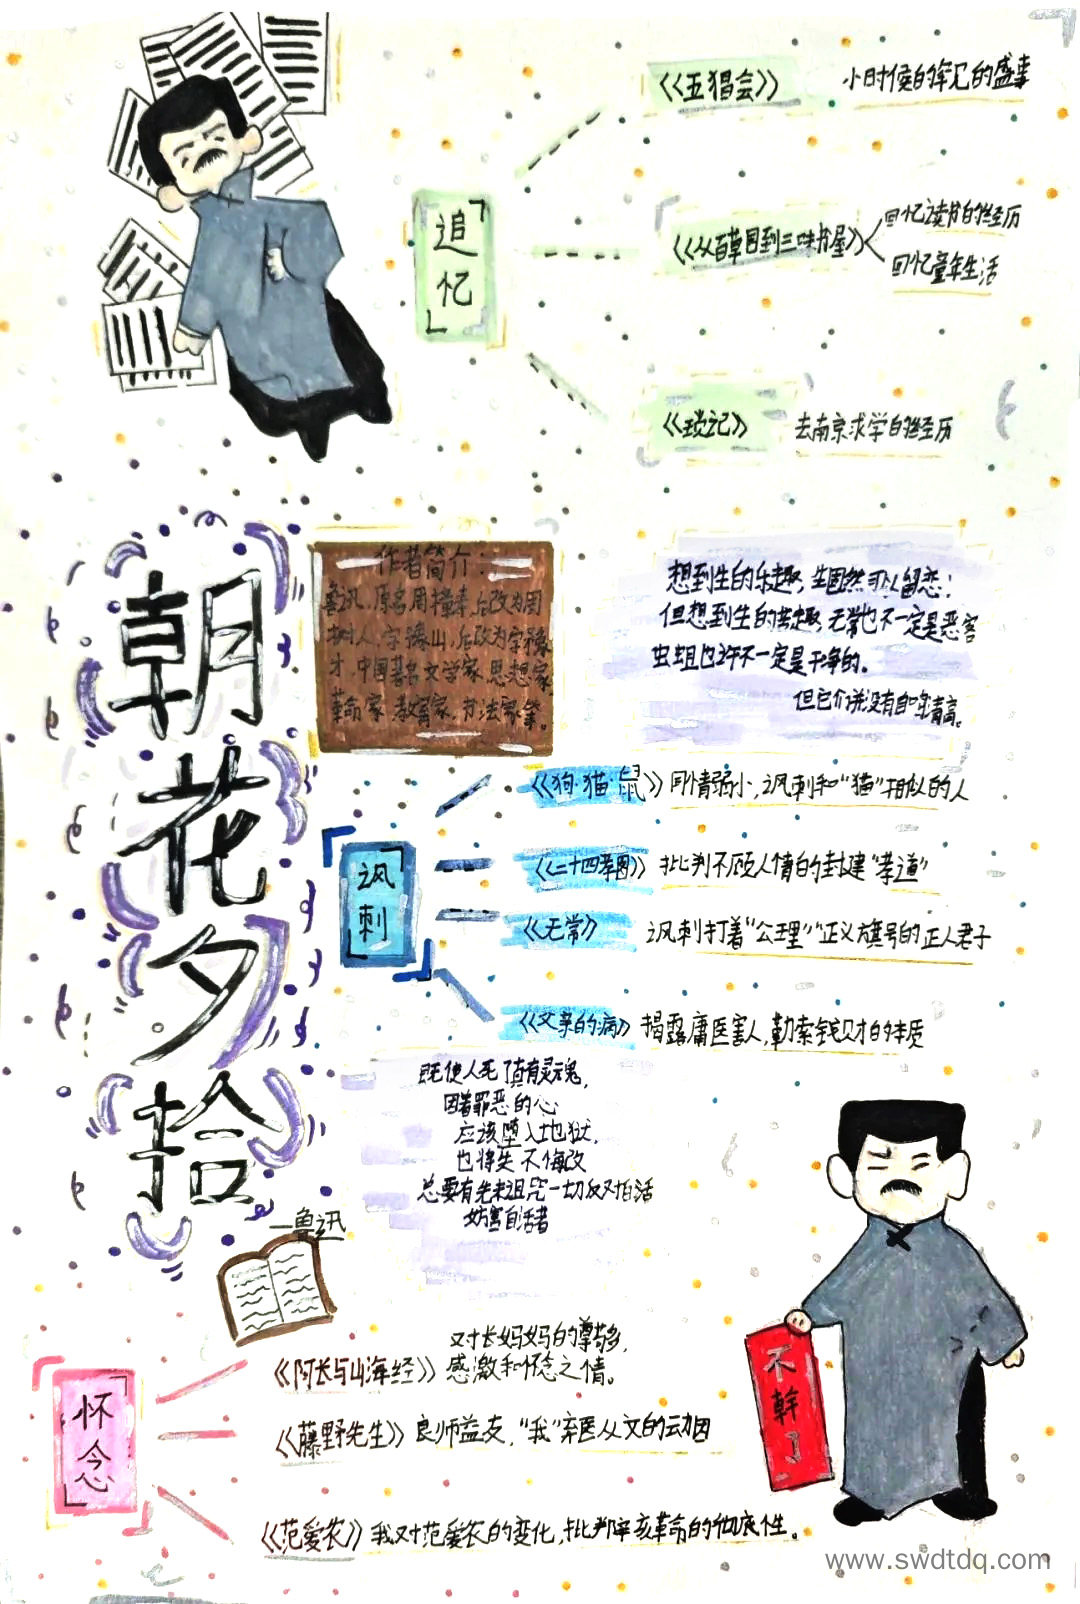 追忆
《五猖会》 小时候的罕见的盛事
《从百草园到三味书屋》
回忆读书的经历
回忆童年生活
《琐记》 去南京求学的经历
朝花夕拾
—鲁迅
作者简介：
鲁迅,原名周樟寿,后改为周
树人,字豫山,后改为字豫
才,中国著名文学家,思想家,
革命家,教育家,书法家等。
想到生的乐趣,生固然可以留恋;
但想到生的苦趣,无常也不一定是恶客
虫蛆也许不一定是干净的。
但它们并没有自鸣清高。
讽刺
《狗·猫·鼠》同情弱小,讽刺和“猫”相似的人
《二十四孝图》批判不顾人情的封建“孝道”
《无常》 讽刺打着“公理”“正义”旗号的正人君子
《父亲的病》揭露庸医害人,勒索钱财的本质
既使人死了真有灵魂,
因着罪恶的心
应该堕入地狱,
也将失不悔改
总要有先来诅咒一切反对白话
妨害白话者
怀念
《阿长与山海经》
对长妈妈的尊敬,
感激和怀念之情。
《藤野先生》良师益友,“我”弃医从文的动因
《范爱农》我对范爱农的变化,批判辛亥革命的彻底性。
不幹了
www.swdtdq.com